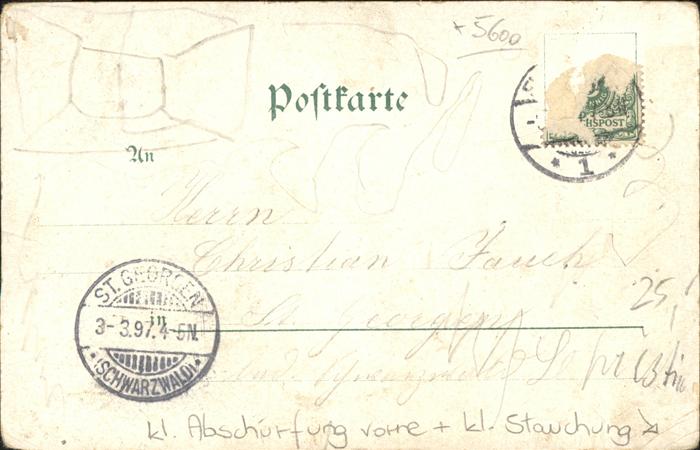 + 5600
Postkarte
HSPOST
* 1 *
An
Herrn
Christian Jauch
in St. Georgen
ST. GEORGEN
3-3.97. 4-5N.
(SCHWARZWALD)
25,-
kl. Abschürfung vorne + kl. Stauchung